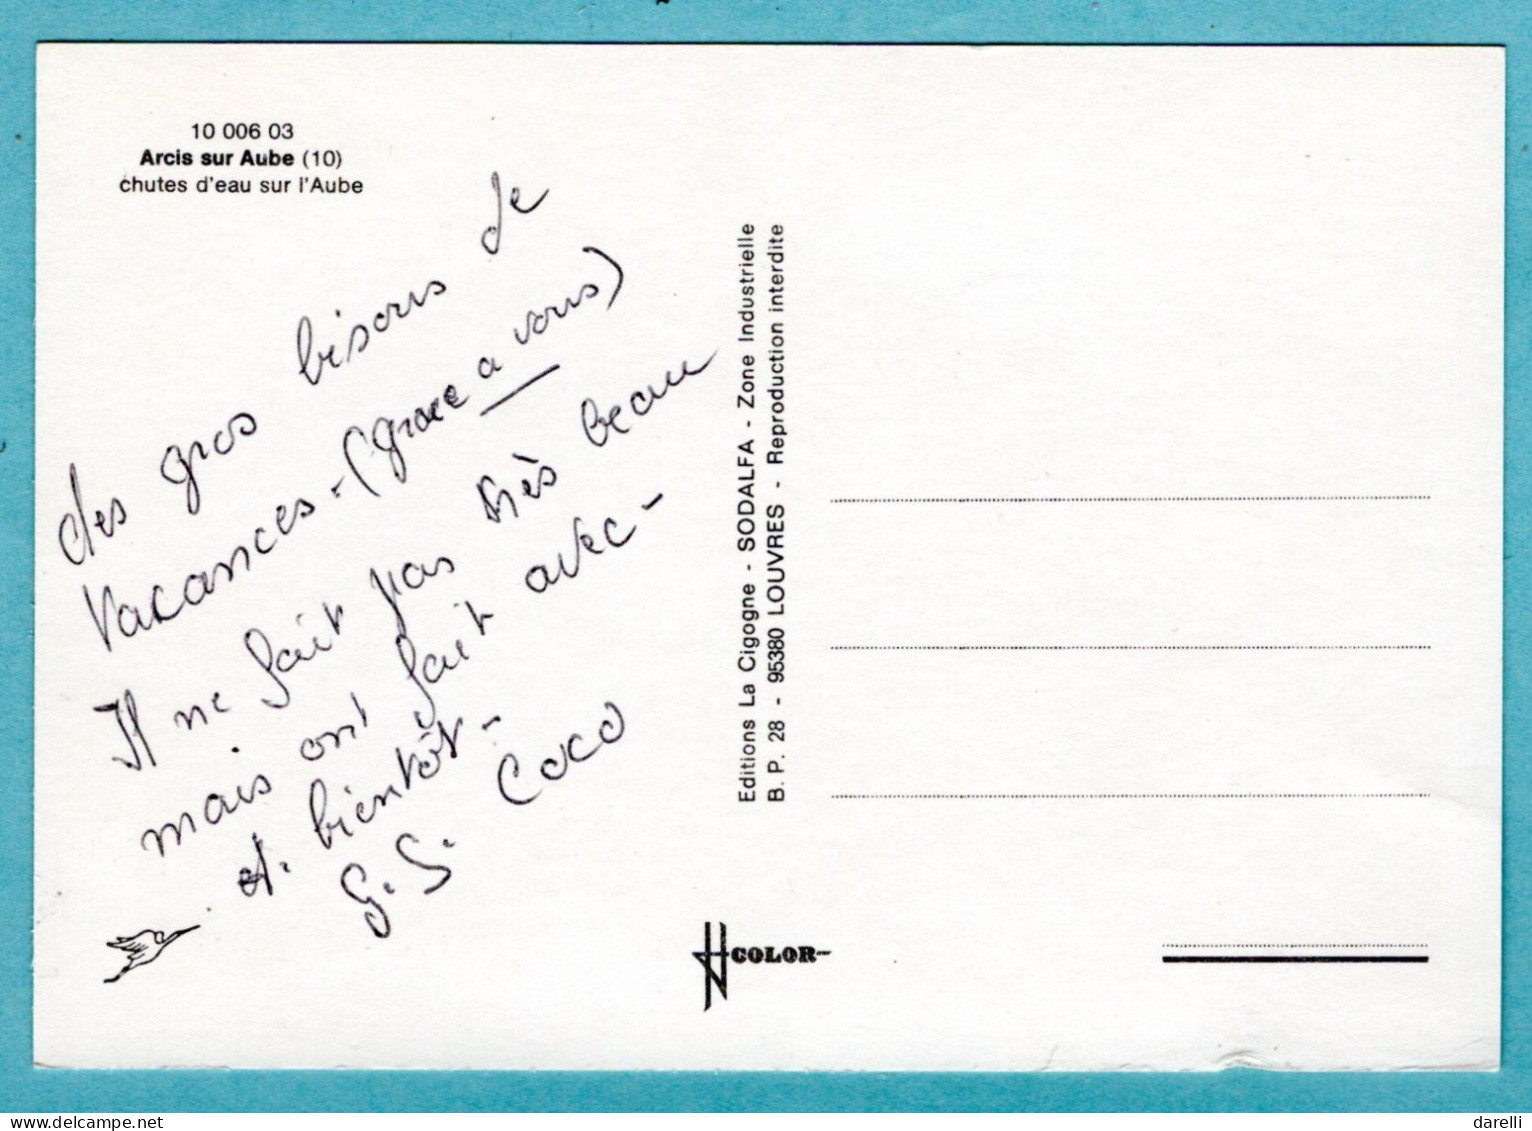 10 006 03
Arcis sur Aube (10)
chutes d'eau sur l'Aube
des gros bisous de
Vacances - (grace a vous)
Il ne fait pas très beau
mais ont fait avec -
A bientôt -
G. G. Coco
Editions La Cigogne - SODALFA - Zone Industrielle
B. P. 28 - 95380 LOUVRES - Reproduction interdite
COLOR
darelli